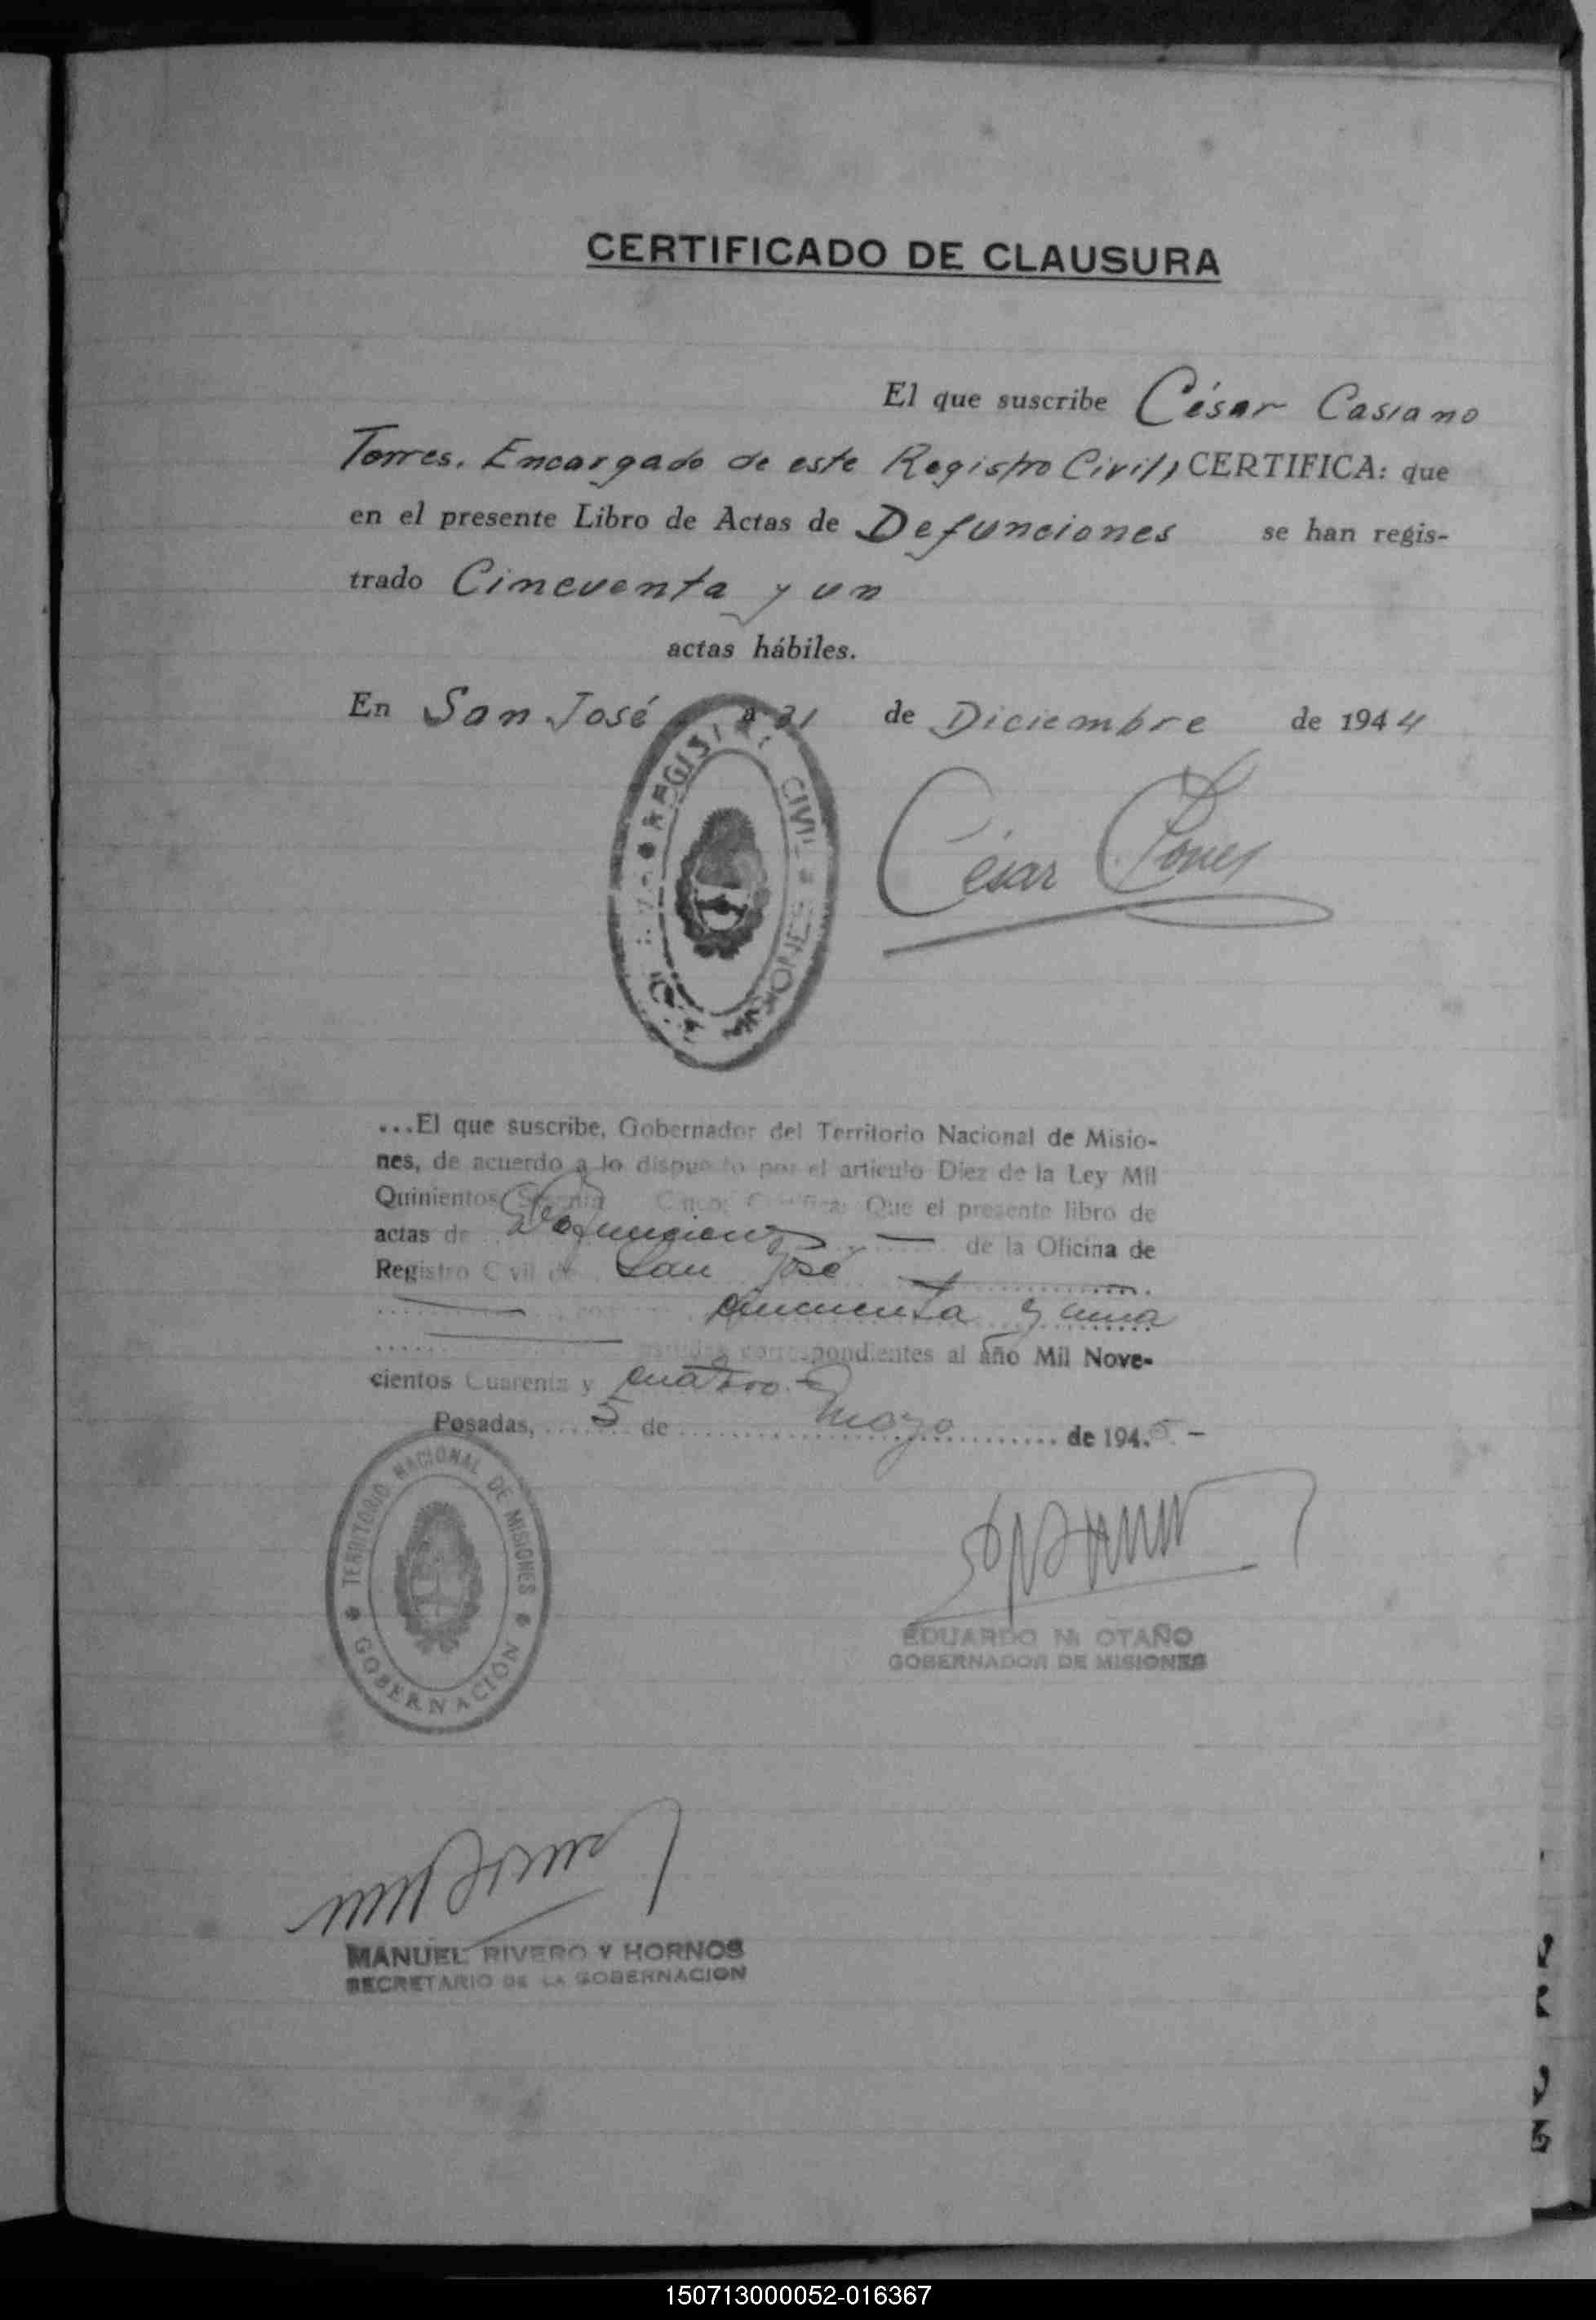 CERTIFICADO DE CLAUSURA
El que suscribe César Casiano
Torres. Encargado de este Registro Civil, CERTIFICA: que
en el presente Libro de Actas de Defunciones se han regis-
trado Cincuenta y un
actas hábiles.
En San José a 31 de Diciembre de 1944
REGISTRO CIVIL
MISIONES
César Torres
...El que suscribe, Gobernador del Territorio Nacional de Misio-
nes, de acuerdo a lo dispuesto por el artículo Diez de la Ley Mil
Quinientos Sesenta Cinco; Certifica: Que el presente libro de
actas de Defunciones — de la Oficina de
Registro Civil de San José
cincuenta y una
partidas correspondientes al año Mil Nove-
cientos Cuarenta y cuatro.-
Posadas, 5 de Mayo de 1945 -
TERRITORIO NACIONAL DE MISIONES
GOBERNACIÓN
EDUARDO M. OTAÑO
GOBERNADOR DE MISIONES
MANUEL RIVERO Y HORNOS
SECRETARIO DE LA GOBERNACION
150713000052-016367